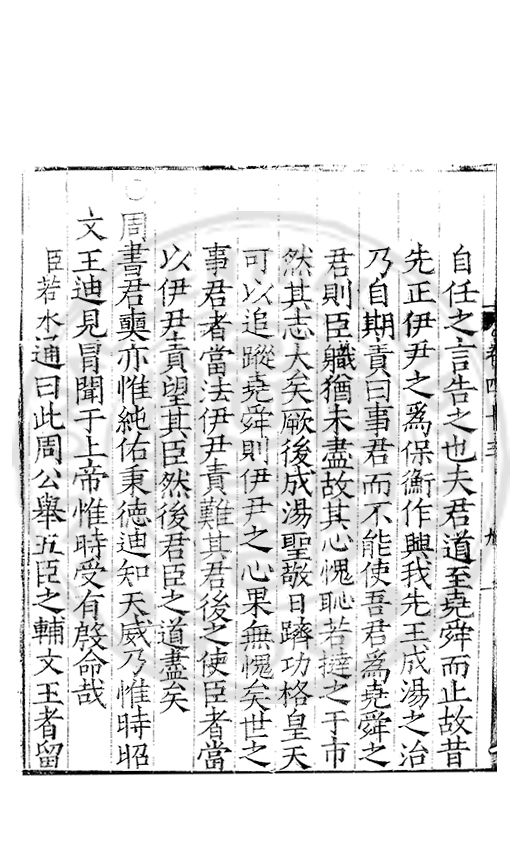 自任之言告之也夫君道至堯舜而止故昔
先正伊尹之爲保衡作興我先王成湯之治
乃自期責曰事君而不能使吾君爲堯舜之
君則臣職猶未盡故其心愧恥若撻之于市
然其志大矣厥後成湯聖敬日躋功格皇天
可以追蹤堯舜則伊尹之心果無愧矣世之
事君者當法伊尹責難其君後之使臣者當
以伊尹責望其臣然後君臣之道盡矣
○周書君奭亦惟純佑秉德迪知天威乃惟時昭
文王迪見冒聞于上帝惟時受有殷命哉
臣若水通曰此周公舉五臣之輔文王者留